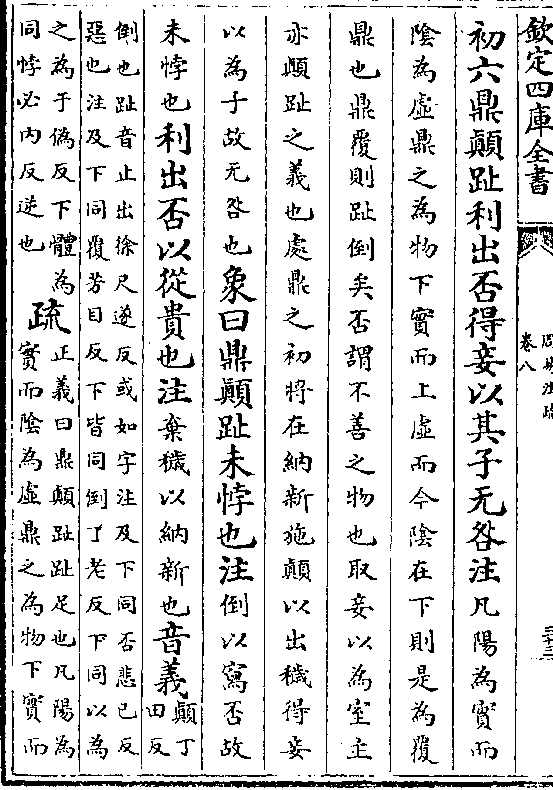 欽定四庫全書
周易注疏
卷八
初六鼎顛趾利出否得妾以其子无咎注凡陽為實而
陰為虛鼎之為物下實而上虛而今陰在下則是為覆
鼎也鼎覆則趾倒矣否謂不善之物也取妾以為室主
亦顛趾之義也處鼎之初將在納新施顛以出穢得妾
以為子故无咎也象曰鼎顛趾未悖也注倒以寫否故
未悖也利出否以從貴也注棄穢以納新也音義
顛丁
田反
倒也趾音止出徐尺遂反或如字注及下同否悲已反
惡也注及下同覆芳目反下皆同倒丁老反下同以為
之為于偽反下體為
同悖必内反逆也
疏
正義曰鼎顛趾趾足也凡陽為
實而陰為虛鼎之為物下實而